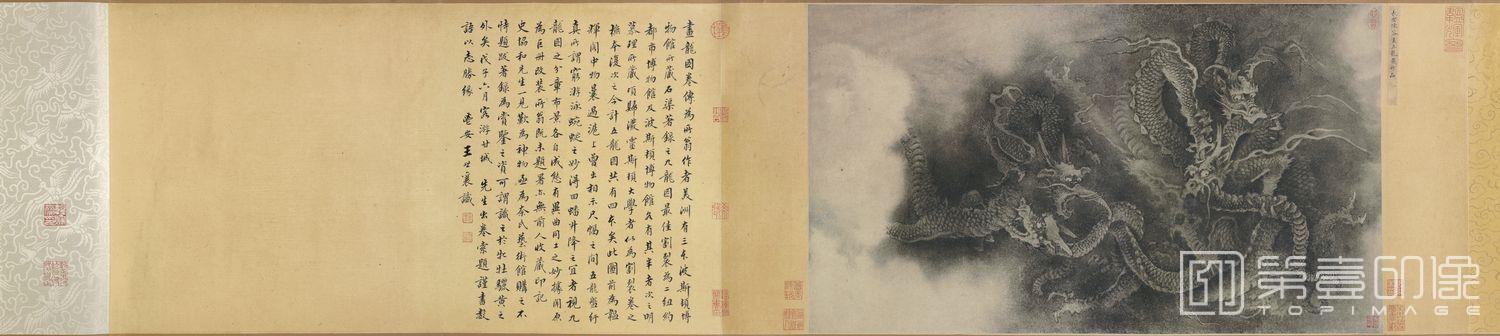 畫龍圖卷傳為所翁作者美洲有三本波斯頓博
物館所藏石渠著錄之九龍圖最佳割裂為二紐約
都市博物館及波斯頓博物館各有其半者次之明
慕理所藏項歸濮雷斯頓大學者似為割裂卷之
摹本復次之今計五龍圖共有四本矣此圖前為韞
輝閣中物曩過滬上曾出相示尺幅之間五龍盤紆
真所謂窮游泳蜿蜒之妙得回蟠升降之宜者視九
龍圖之分章布景各自成態有異曲同工之妙據聞原
為巨冊改裝所翁既未題署亦無前人收藏印記
史協和先生一見歎為神物亟為奈氏藝術館購之不
特題跋著錄為賞鑒之資可謂識之於牝牡驪黃之
外矣戊子六月客游甘城 先生出卷索題謹書數
語以志勝緣 鬯安王世襄識
第壹印像
TOPIMAGE